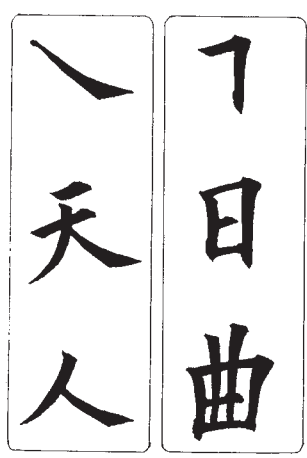 ㇕日曲
㇏天人